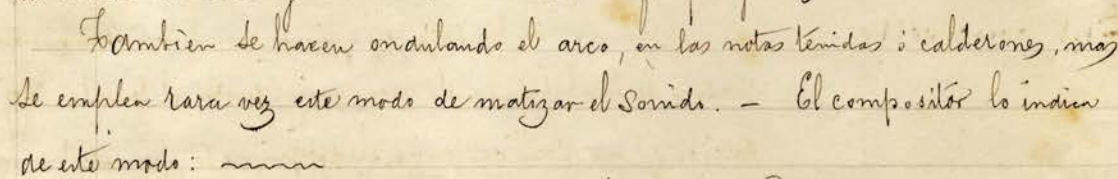 Tambien se hacen ondulando el arco, en las notas tenidas ò calderones, mas
se emplea rara vez este modo de matizar el sonido. - El compositór lo indica
de este modo: ~~~~